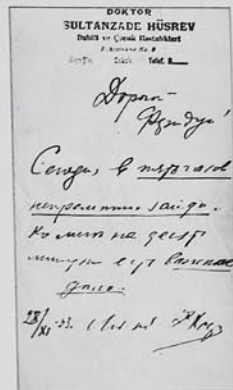 DOKTOR
SULTANZADE HÜSREV
Dahilî ve Çocuk Hastalıkları
No. 8
Telef.
Дорогой
Фридун!
Сегодня, в пять часов
непременно зайди
ко мне на десять
минут есть важное
дело.
28/XI - 33.